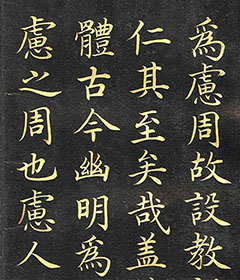 為慮周故設教
仁其至矣哉盖
體古今幽明為
慮之周也慮人